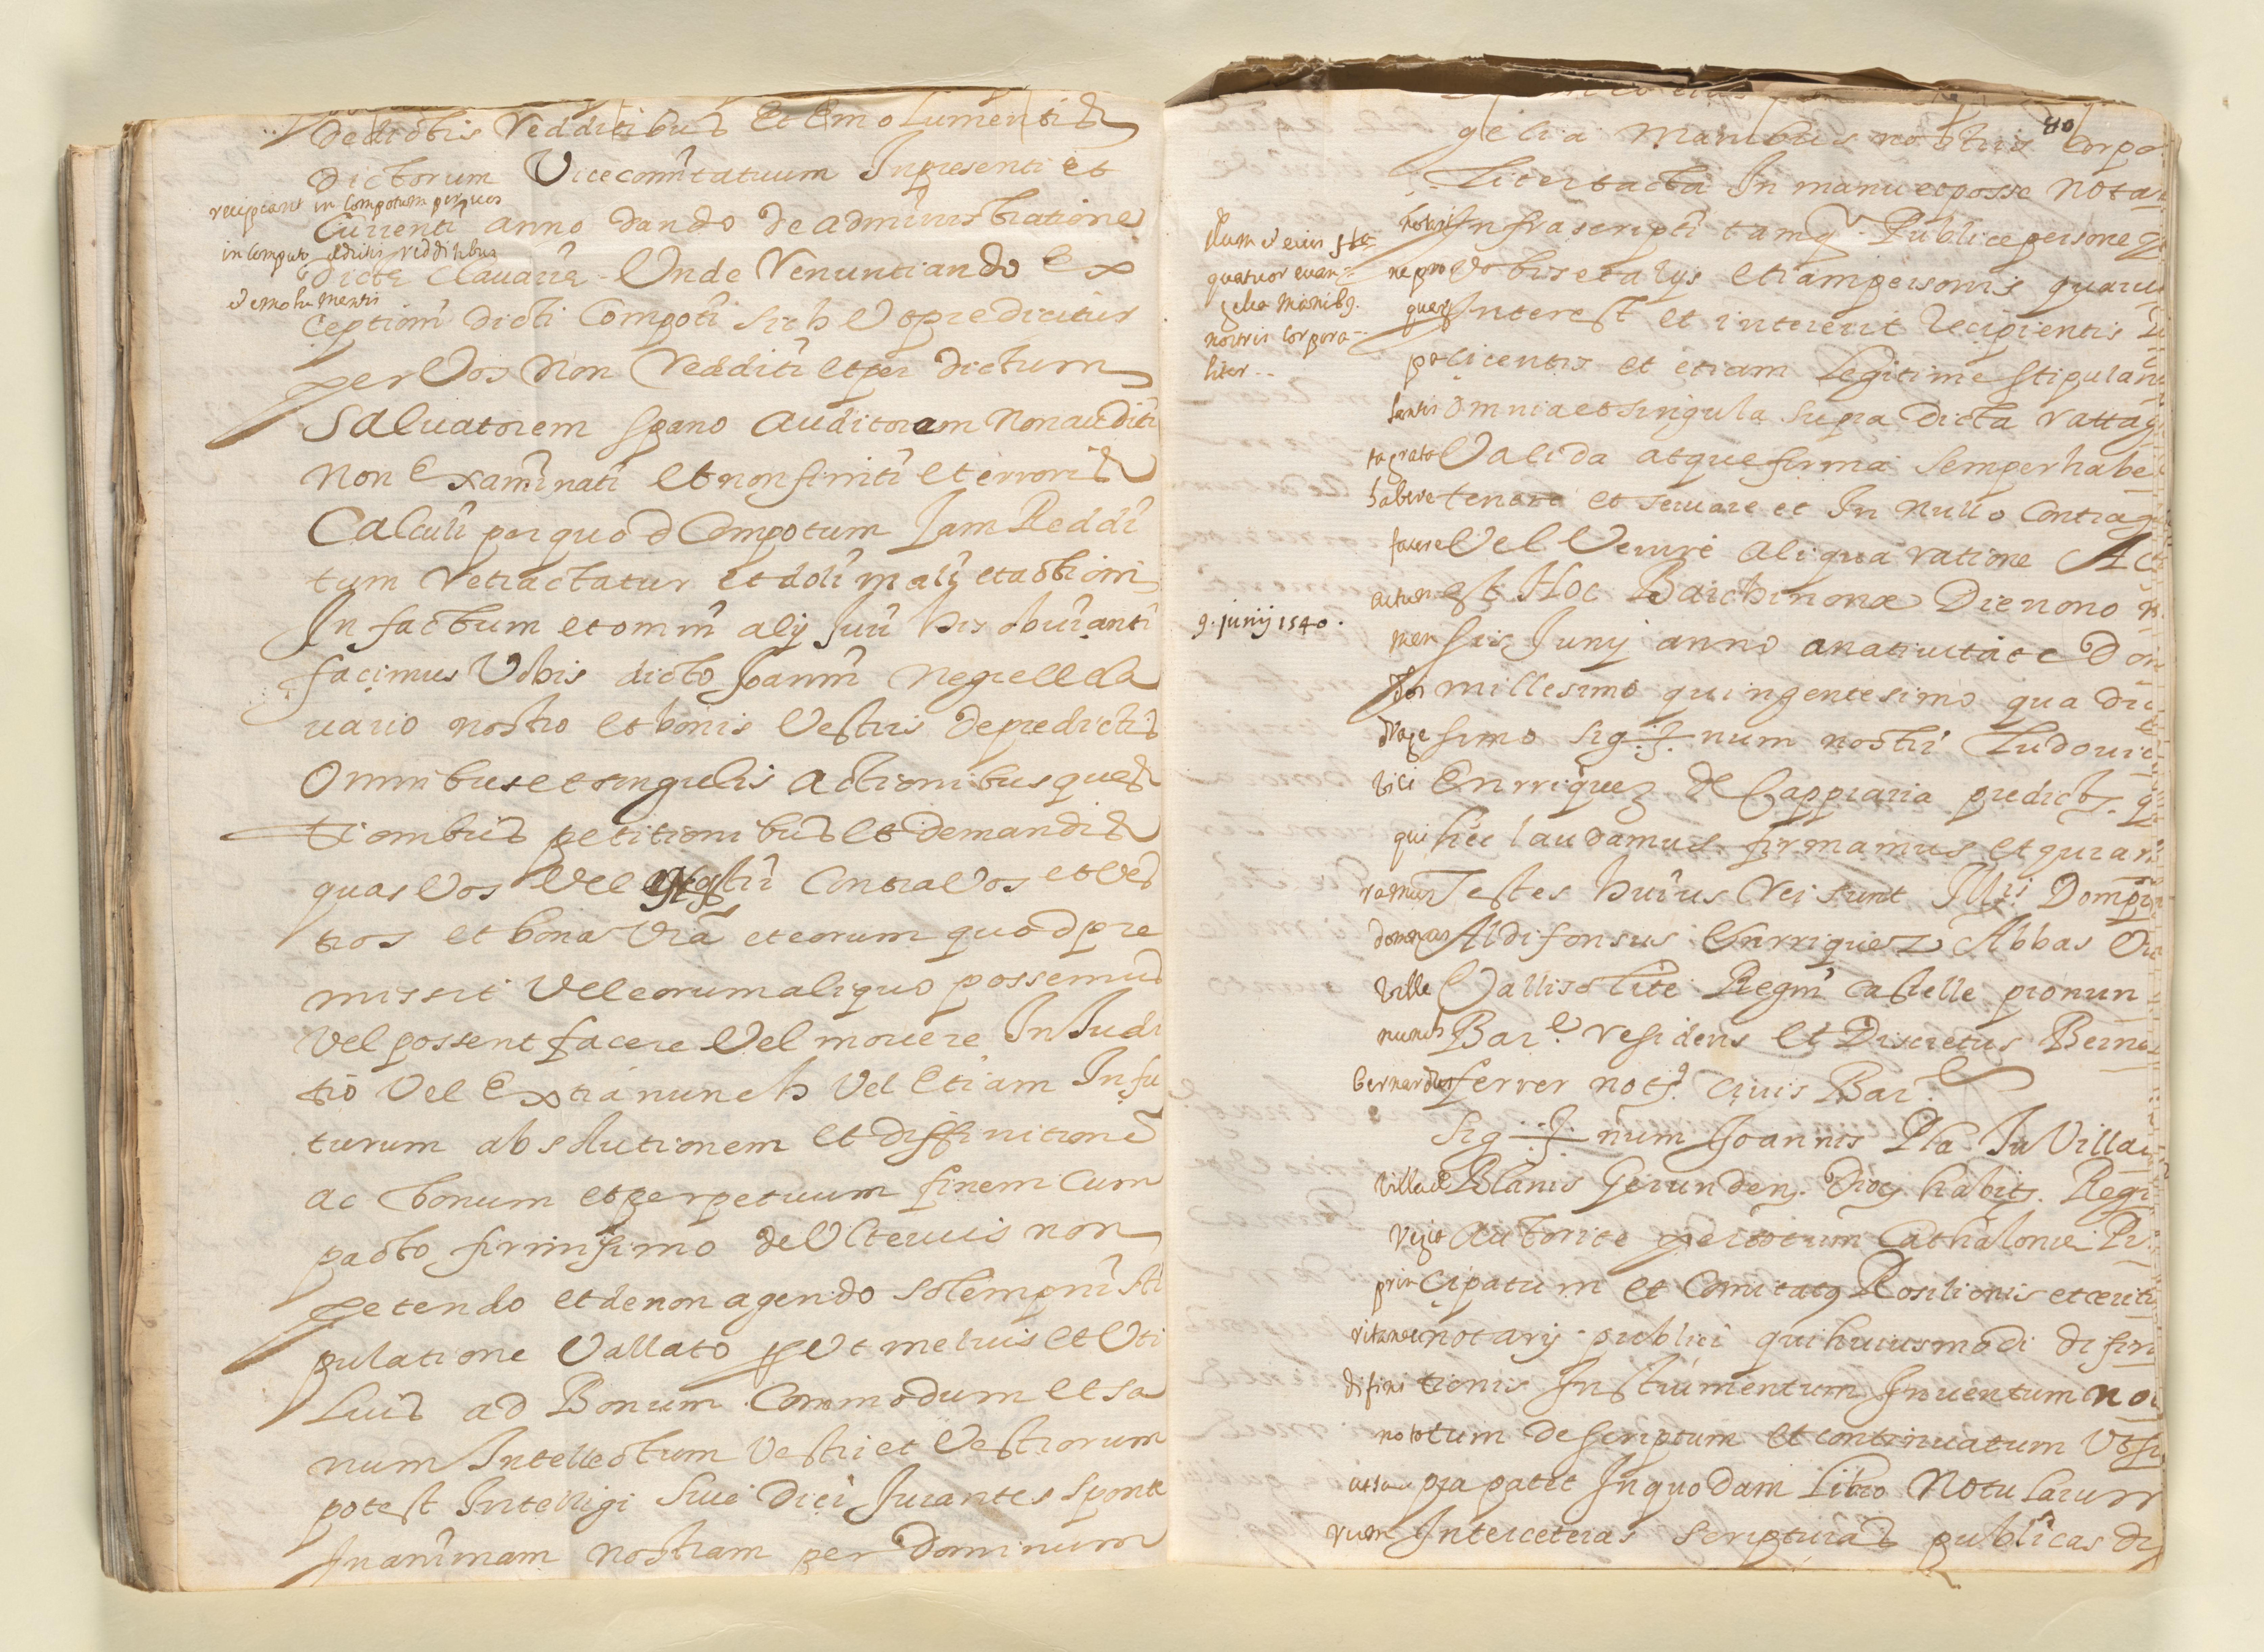 De dictis Redditibus Et Emolumentis
dictorum Vicecomitatuum In presenti et
recipiant in compotum per vos
Currenti anno dando de administratione
in computo redditibus
dicte Clavarie Unde Renuntiando Ex
et emolumentis
ceptioni dicti Compoti sich Ut predicitur
per Vos Non Redditi et per dictum
Salvatorem spano Auditorem Non auditi
Non Examinati et non finiti et erroris
Calculi per quod Compotum Jam Reddi
tum retractatur et doli mali et actioni
In factum et omni alij Juri his obvianti
facimus Vobis dicto Joanni Negrell cla
vario nostro et bonis Vestris de predictis
Omnibus et singulis Actionibus ques
tionibus petitionibus et demandis
quas Vos Vel Contra Vos et Ves
tros et bona Vra et eorum quod pre
missit Vel eorum aliquo possemus
Vel possent facere Vel movere In Judi
tio Vel Extra nunch Vel Etiam In fu
turum absolutionem et diffinitione
ac bonum et perpetuum finem Cum
pacto firmissimo de Ulterius non
petendo et de non agendo Solempni sti
pulatione Vallato Ut melius et Uti
lius ad Bonum Commodum et sa
num Intellectum Vestri et Vestrorum
potest Intelligi sive dici Jurantes sponte
In animam nostram per Dominum
80
gelia Manibus nostris corpo
liter tacta In manu et posse Nota
illum et eius
quatuor evan
gelia manibus
nostris corpora
liter
Infrascripti tamq Publice persone
ne pro Vobis et alys etiam personis quaru
quarum Interest et intererit Recipientis
policentis et etiam Legitime stipulan
lantis omnia et singula supra dicta ratta
ta grata Valida atque firma semper habe
habere tenere et servare et In Nullo Contra
facere Vel Venire aliqua ratione Ac
9. junij 1540.
actum est Hoc Barchinona Die nono
men sis Juny anno a nativitate Dom
millesimo quingentesimo qua dra
drage simo Sig num nostri Ludovi
vici Enrriquez de Cappraria predict q
qui hec laudamus firmamus et juram
ramus Testes huius Rei sunt Domp
dompnus Aldifonsus Enrriquez Abbas
Ville Vallisoliti Regni Castelle pro nun
nunch Bar. residens et Discretus Berna
bernardus ferrer not. Civis Bar.
Sig num Joannis Pla In Villa
villa de Blanis Gerunden. Dioc. habit. Regi
Regia Autorite per totum Cathalonie Pr
prin cipatum et Comitatq Rosilionis et ceriti
ritanie notarij publici qui huiusmodi difini
difini tionis Instrumentum Inventum no
notatum descriptum et continuatum Ut su
ut su pra patet In quodam Libro Notularum
rum Inter ceteras scripturas publicas di